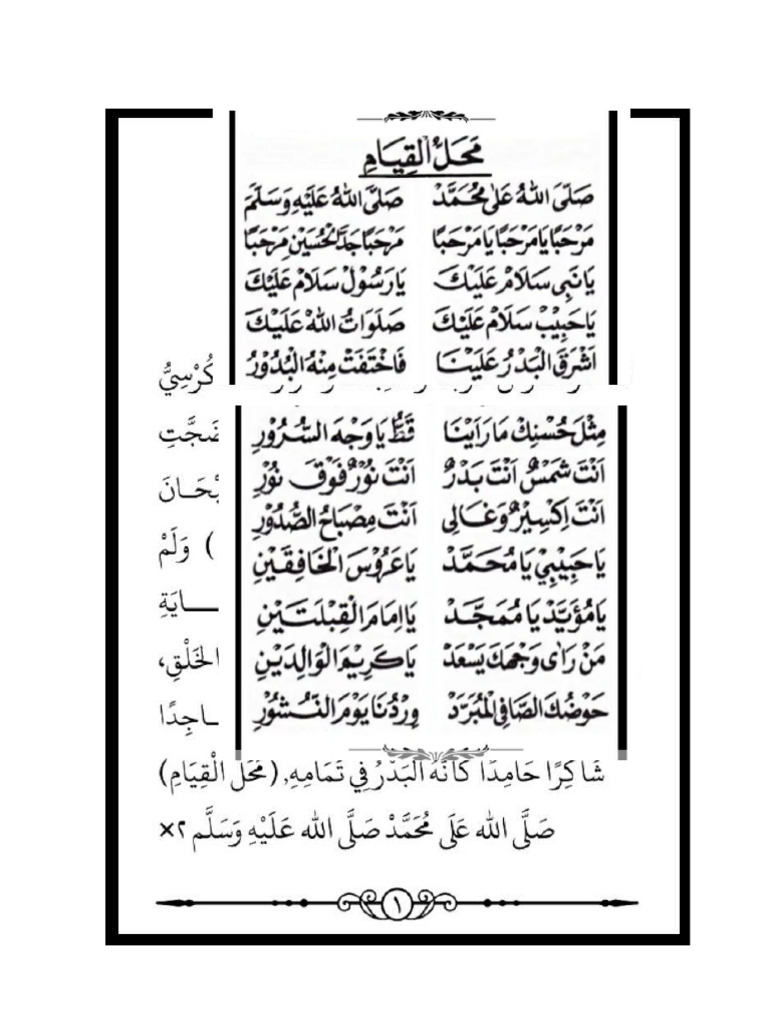 مَحَلُّ الْقِيَامِ
صَلَّى اللهُ عَلٰى مُحَمَّدْ صَلَّى اللهُ عَلَيْهِ وَسَلَّمَ
مَرْحَبًا يَا مَرْحَبًا يَا مَرْحَبًا مَرْحَبًا جَدَّ الْحُسَيْنِ مَرْحَبًا
يَا نَبِى سَلَامْ عَلَيْكَ يَا رَسُوْلْ سَلَامْ عَلَيْكَ
يَا حَبِيْبْ سَلَامْ عَلَيْكَ صَلَوَاتُ اللهْ عَلَيْكَ
اَشْرَقَ الْبَدْرُ عَلَيْنَا فَاخْتَفَتْ مِنْهُ الْبُدُوْرُ
كُرْسِيُّ
مِثْلَ حُسْنِكْ مَا رَاَيْنَا قَطُّ يَا وَجْهَ السُّرُوْرِ
ضَجَّتِ
اَنْتَ شَمْسٌ اَنْتَ بَدْرٌ اَنْتَ نُوْرٌ فَوْقَ نُوْرِ
اَنْتَ اِكْسِيْرٌ وَغَالِى اَنْتَ مِصْبَاحُ الصُّدُوْرِ
يَا حَبِيْبِيْ يَا مُحَمَّدْ يَا عَرُوْسَ الْخَافِقَيْنِ
) وَلَمْ
يَا مُؤَيَّدْ يَا مُمَجَّدْ يَا اِمَامَ الْقِبْلَتَيْنِ
مَنْ رَاٰى وَجْهَكَ يَسْعَدْ يَا كَرِيْمَ الْوَالِدَيْنِ
الْخَلْقِ،
حَوْضُكَ الصَّافِى الْمُبَرَّدْ وِرْدُنَا يَوْمَ النُّشُوْرِ
شَاكِرًا حَامِدًا كَأَنَّهُ الْبَدْرُ فِي تَمَامِهِ, (مَحَلُ الْقِيَامِ)
صَلَّى الله عَلَى مُحَمَّدْ صَلَّى الله عَلَيْهِ وَسَلَّم ٢×
١